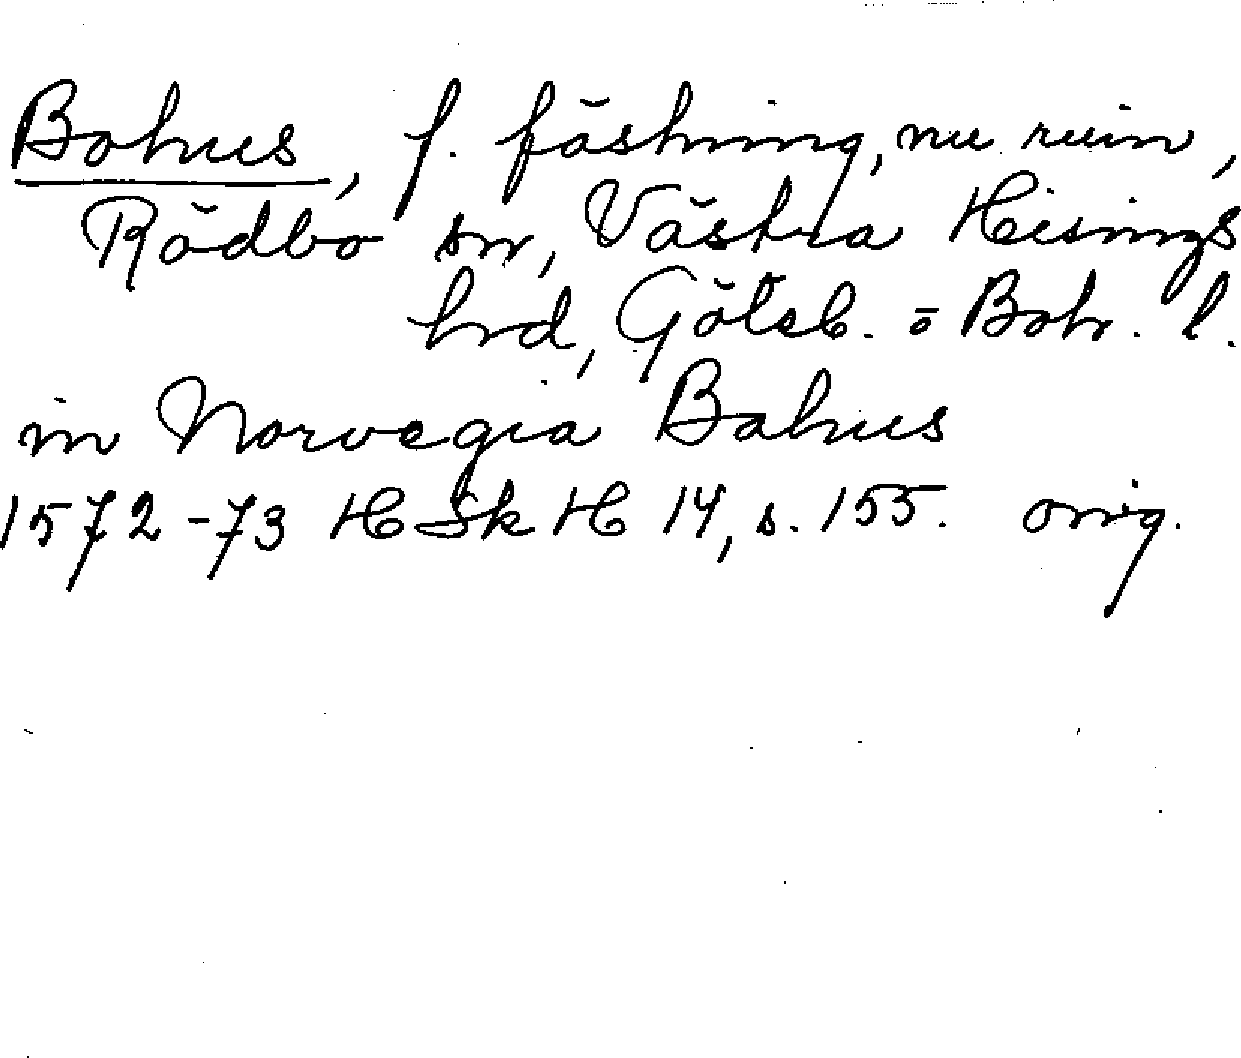 Bohus, f. fästning, nu ruin,
Rödbo sn, Västra Hisings
hrd, Göteb. o Boh. l.
in Norvegia Bahus
1572-73 HSkH 14, s. 155. orig.